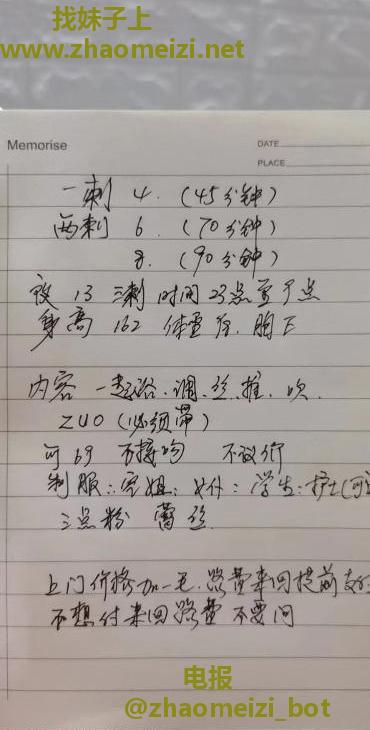 找妹子上
www.zhaomeizi.net
Memorise
DATE
PLACE
一刺 4. (45分钟)
两刺 6. (70分钟)
8. (90分钟)
夜 13 三刺 时间 23点至7点
身高 162 体重 胸 E
内容 一起浴. 调. 丝. 推. 吹.
ZUO (必须带)
可69 不接吻 不议价
制服: 空姐: 女仆: 学生: 护士(可
三点粉 蕾丝
上门价格加一毛. 路费来回提前支付
不想付来回路费 不要问
电报
@zhaomeizi_bot